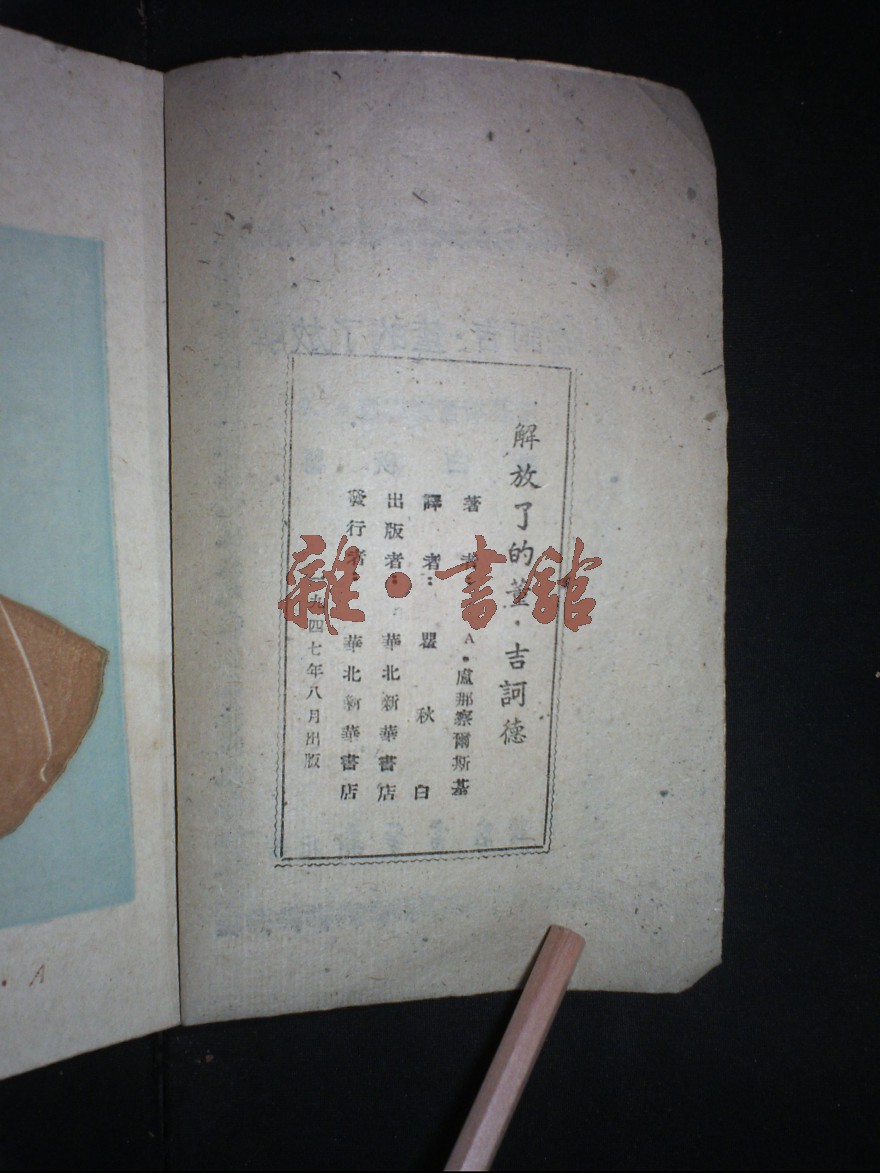 解放了的董·吉訶德
著者：A·盧那察爾斯基
譯者：瞿秋白
出版者：華北新華書店
發行者：華北新華書店
一九四七年八月出版
雜·書館
A